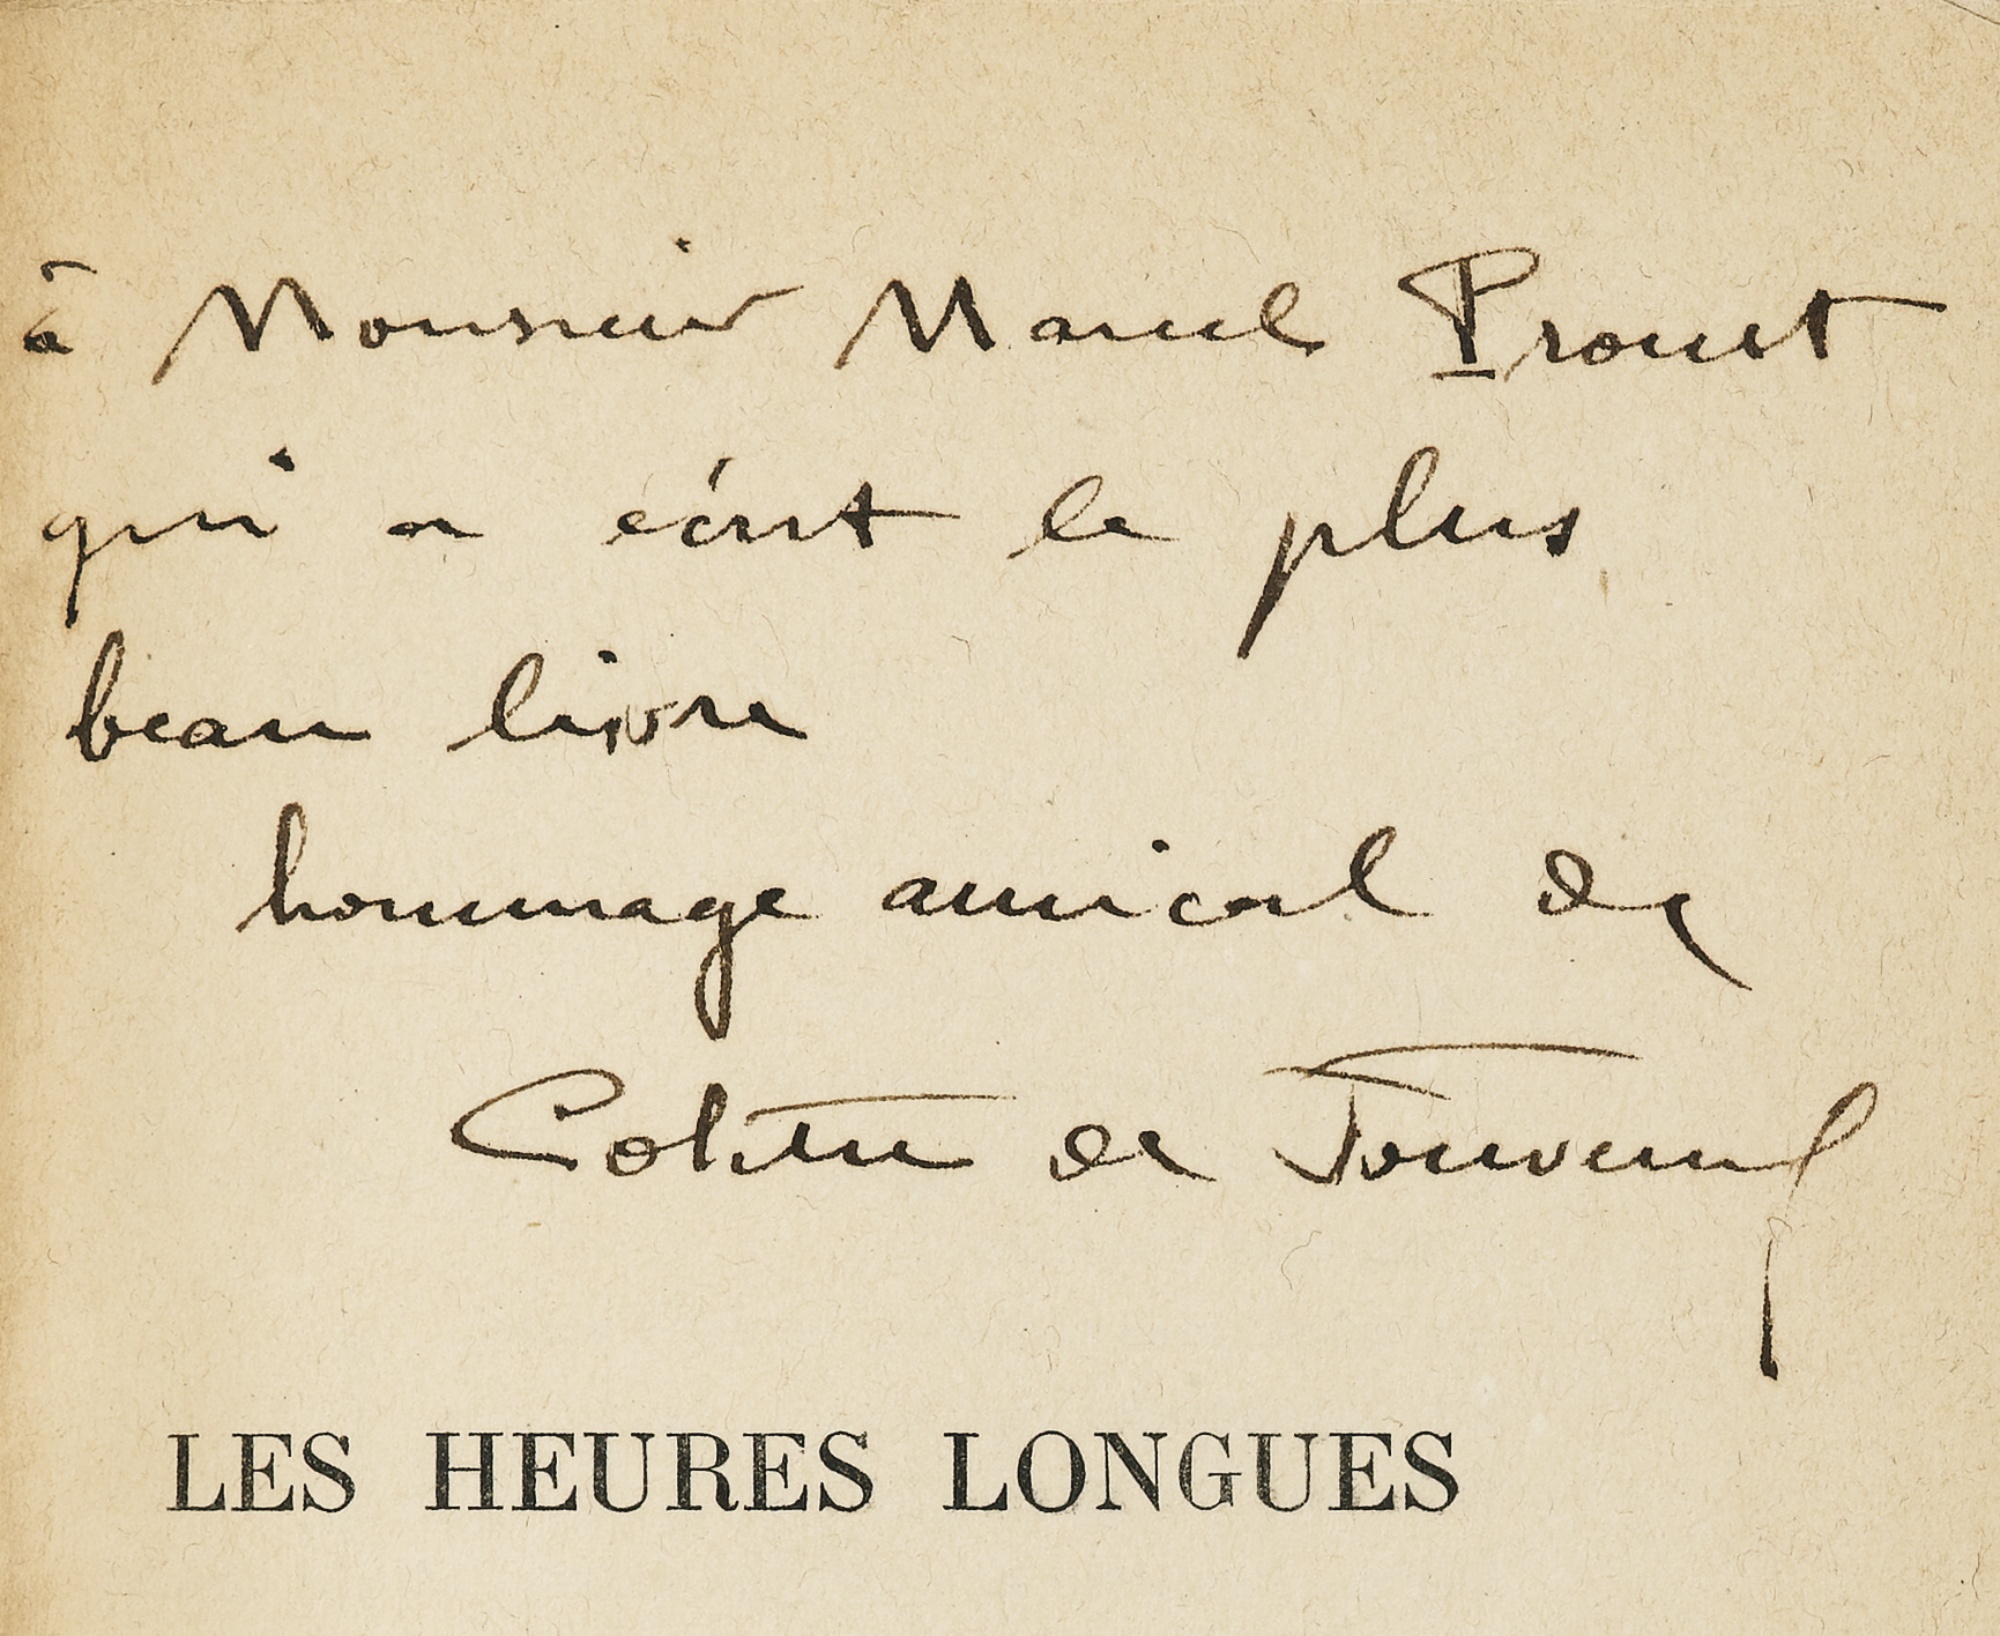 à Monsieur Marcel Proust
qui a écrit le plus
beau livre
hommage amical de
Colette de Jouvenel
LES HEURES LONGUES